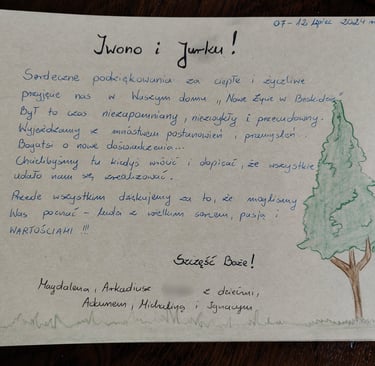 07-12 Lipiec 2024 r
Iwono i Jurku!
Serdeczne podziękowania za ciepłe i życzliwe
przyjęcie nas w Waszym domu „Nowe Życie w Beskidzie"
Był to czas niezapomniany, niezwykły i przecudowny.
Wyjeżdżamy z mnóstwem postanowień, przemyśleń...
Bogatsi o nowe doświadczenia...
Chcielibyśmy tu kiedyś wrócić i dopisać, że wszystkie
udało nam się zrealizować.
Przede wszystkim dziękujemy za to, że mogliśmy
Was poznać - ludzi z wielkim sercem, pasją i
WARTOŚCIAMI !!!
Szczęść Boże!
Magdalena, Arkadiusz z dziećmi,
Adamem, Michaliną i Ignacym